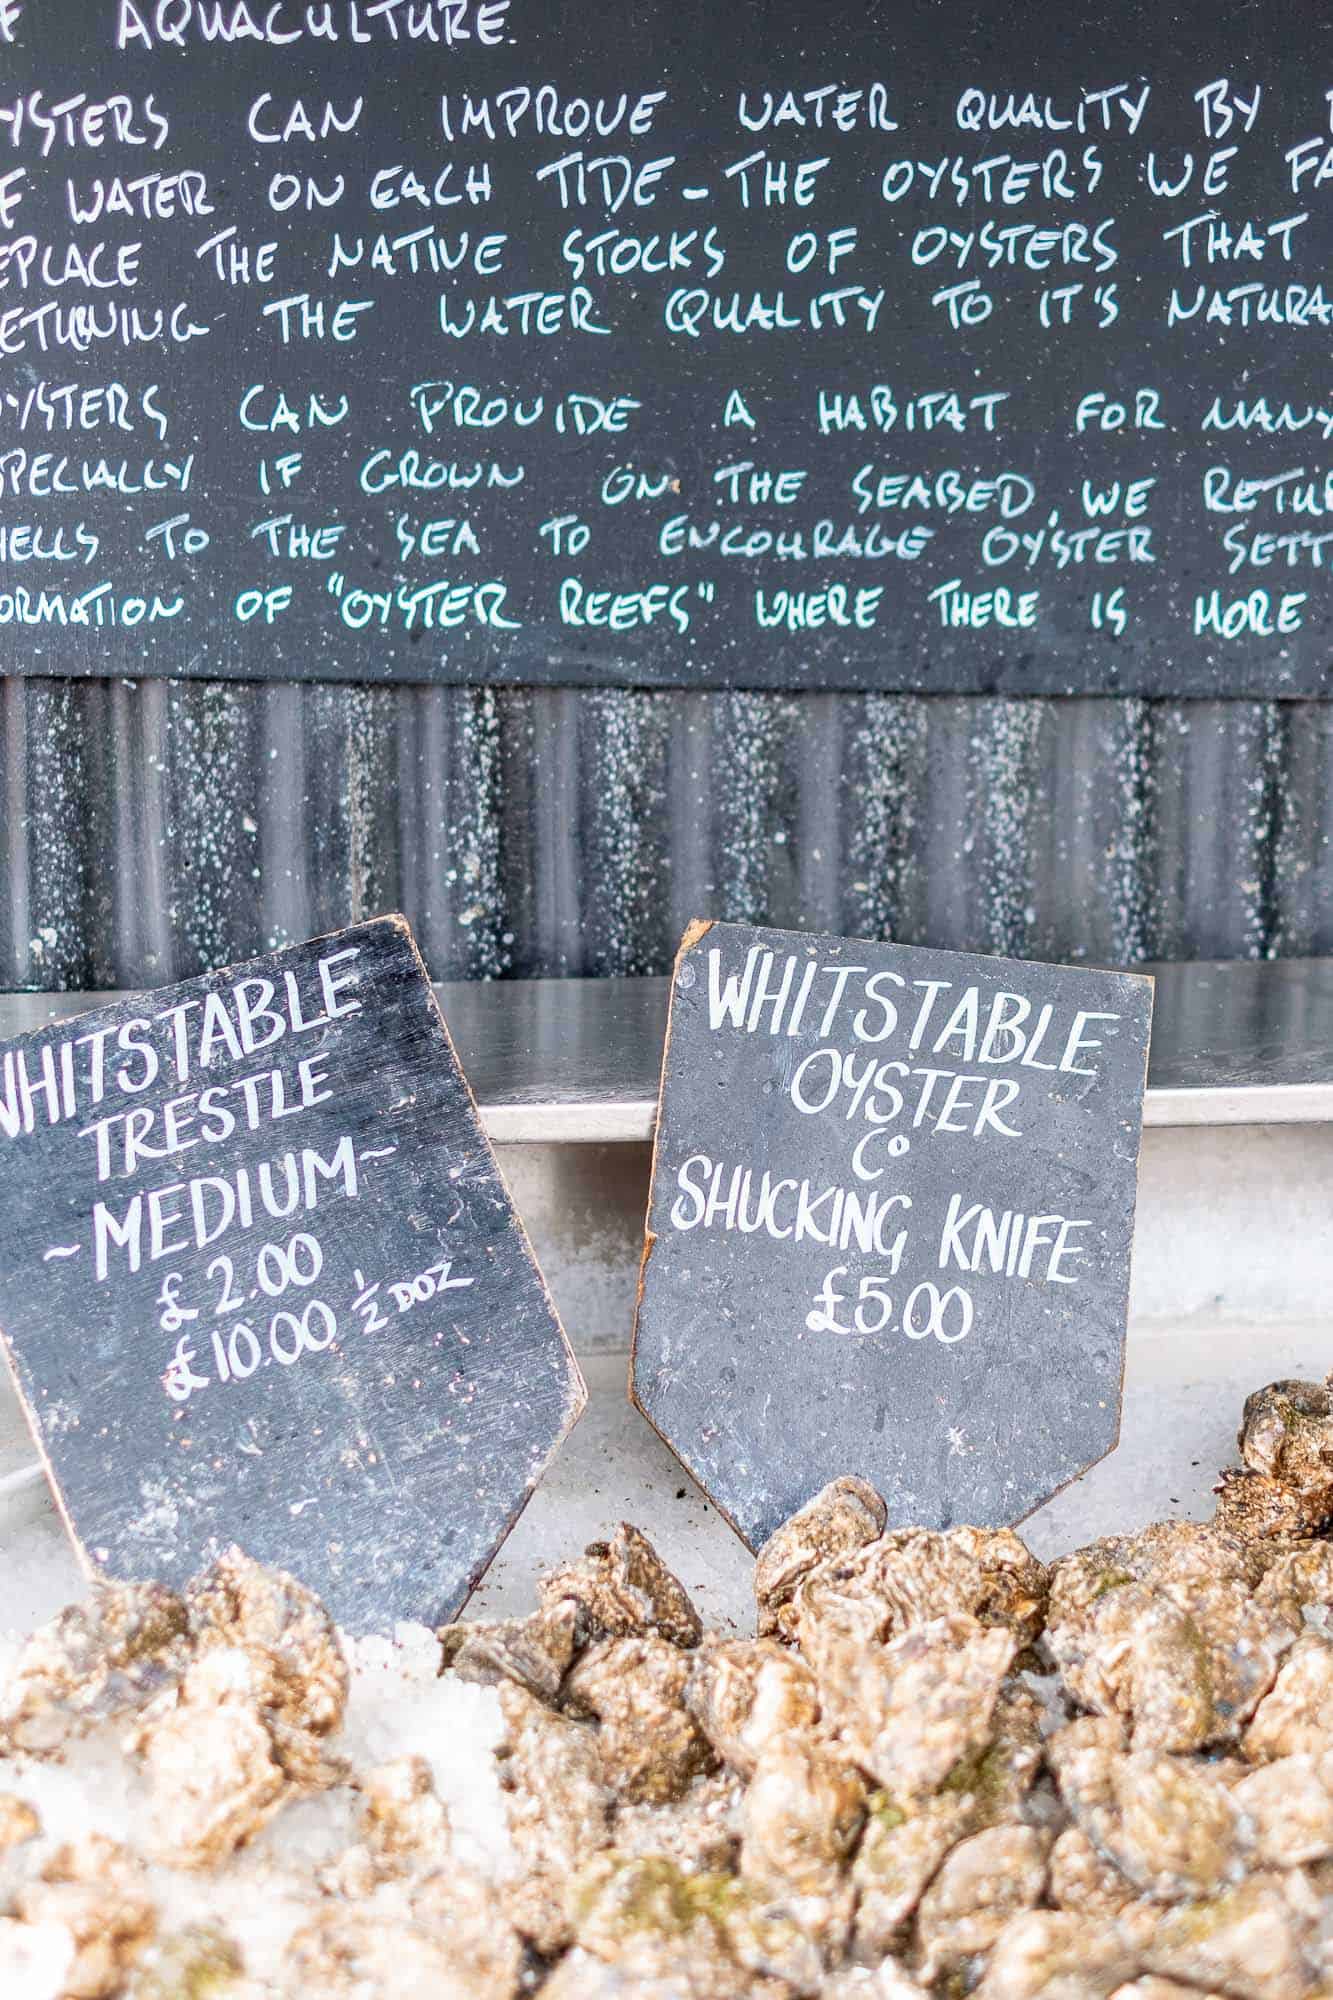 AQUACULTURE.
OYSTERS CAN IMPROVE WATER QUALITY BY
OF WATER ON EACH TIDE - THE OYSTERS WE
REPLACE THE NATIVE STOCKS OF OYSTERS THAT
RETURNING THE WATER QUALITY TO IT'S NATURA
OYSTERS CAN PROVIDE A HABITAT FOR MANY
SPECIALLY IF GROWN ON THE SEABED, WE RETUR
HELLS TO THE SEA TO ENCOURAGE OYSTER SETT
ORMATION OF "OYSTER REEFS" WHERE THERE IS MORE
WHITSTABLE
TRESTLE
~MEDIUM~
£2.00
£10.00 1/2 DOZ
WHITSTABLE
OYSTER
Co
SHUCKING KNIFE
£5.00